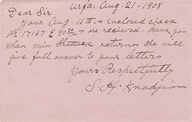 Urfa, Aug. 21-1908
Dear Sir
Your Aug 11th & enclosed check
No 17167 £ 90 is received. Thank you
when Miss Shattuck returns she will
give full answer to your letters.
Yours Respectfully
S. H.